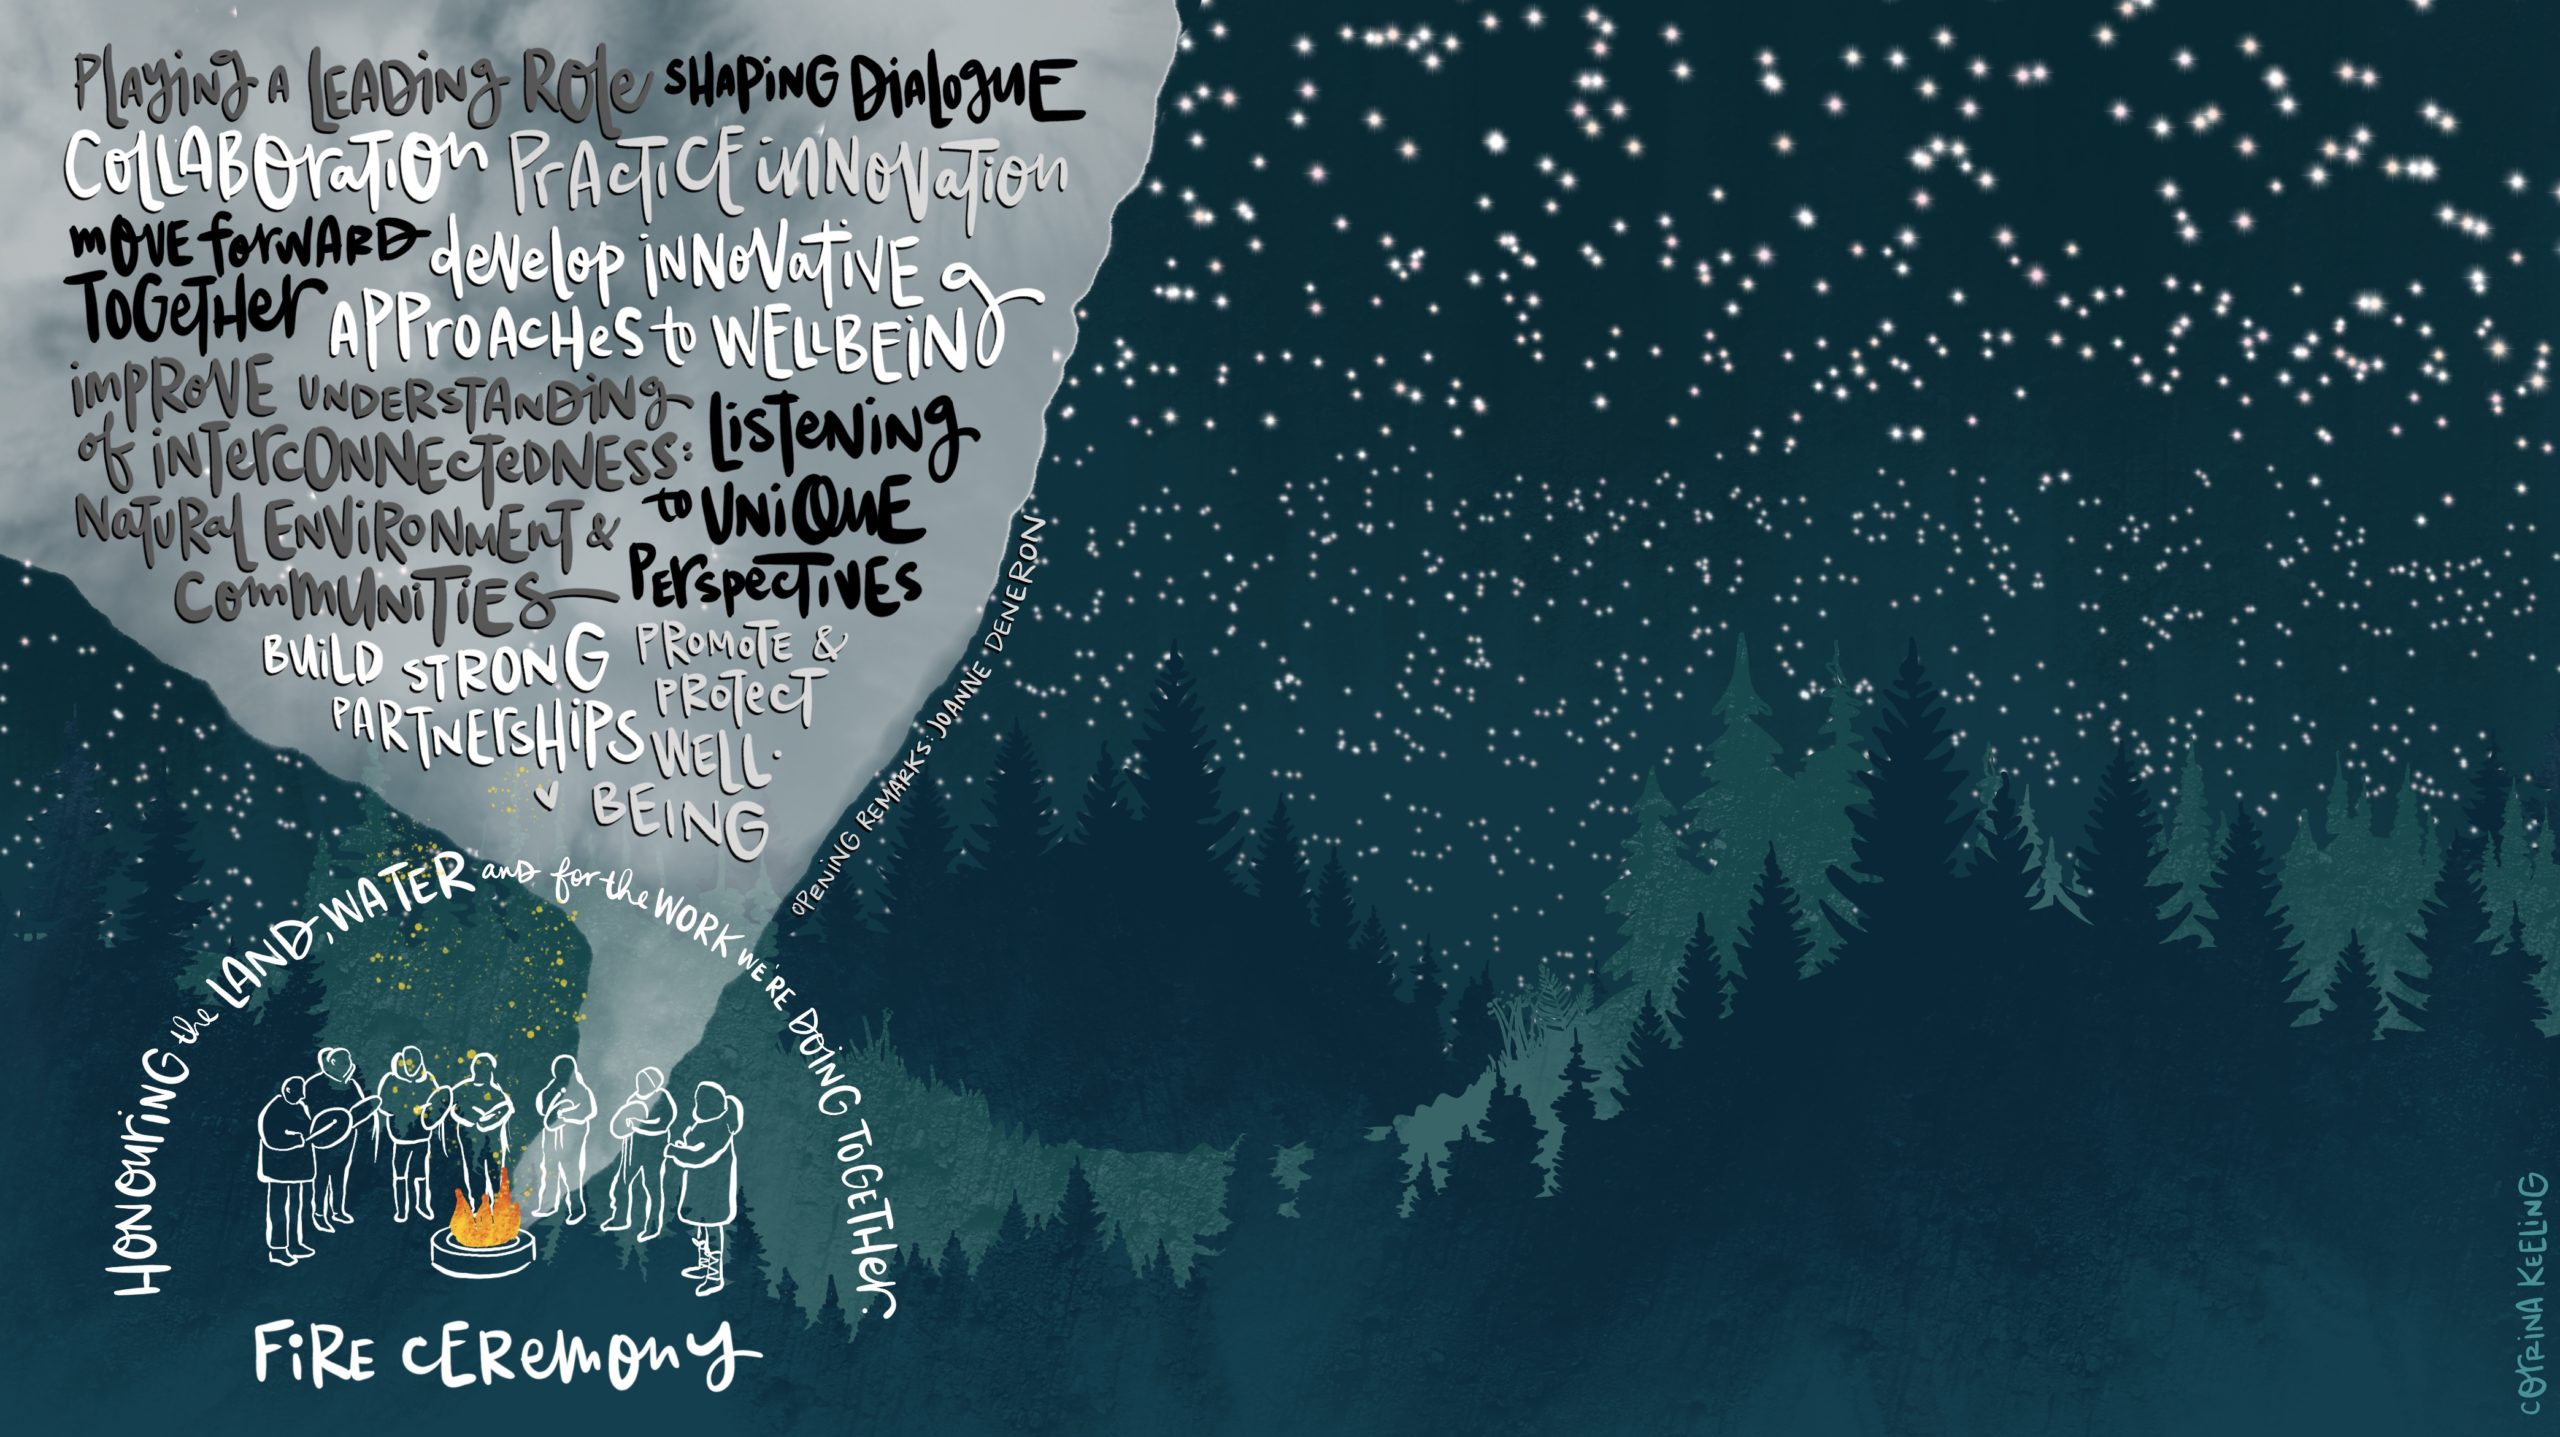 PLAYING A LEADING ROLE
SHAPING DIALOGUE
COLLABORATION
PRACTICE INNOVATION
MOVE FORWARD
TOGETHER
DEVELOP INNOVATIVE
APPROACHES TO WELLBEING
IMPROVE UNDERSTANDING
OF INTERCONNECTEDNESS:
NATURAL ENVIRONMENT &
COMMUNITIES
LISTENING
TO UNIQUE
PERSPECTIVES
BUILD STRONG
PARTNERSHIPS
PROMOTE &
PROTECT
WELL-
BEING
OPENING REMARKS: JOANNE DENERON
HONOURING the LAND, WATER and for the WORK WE'RE DOING TOGETHER.
FIRE CEREMONY
CORRINA KEELING